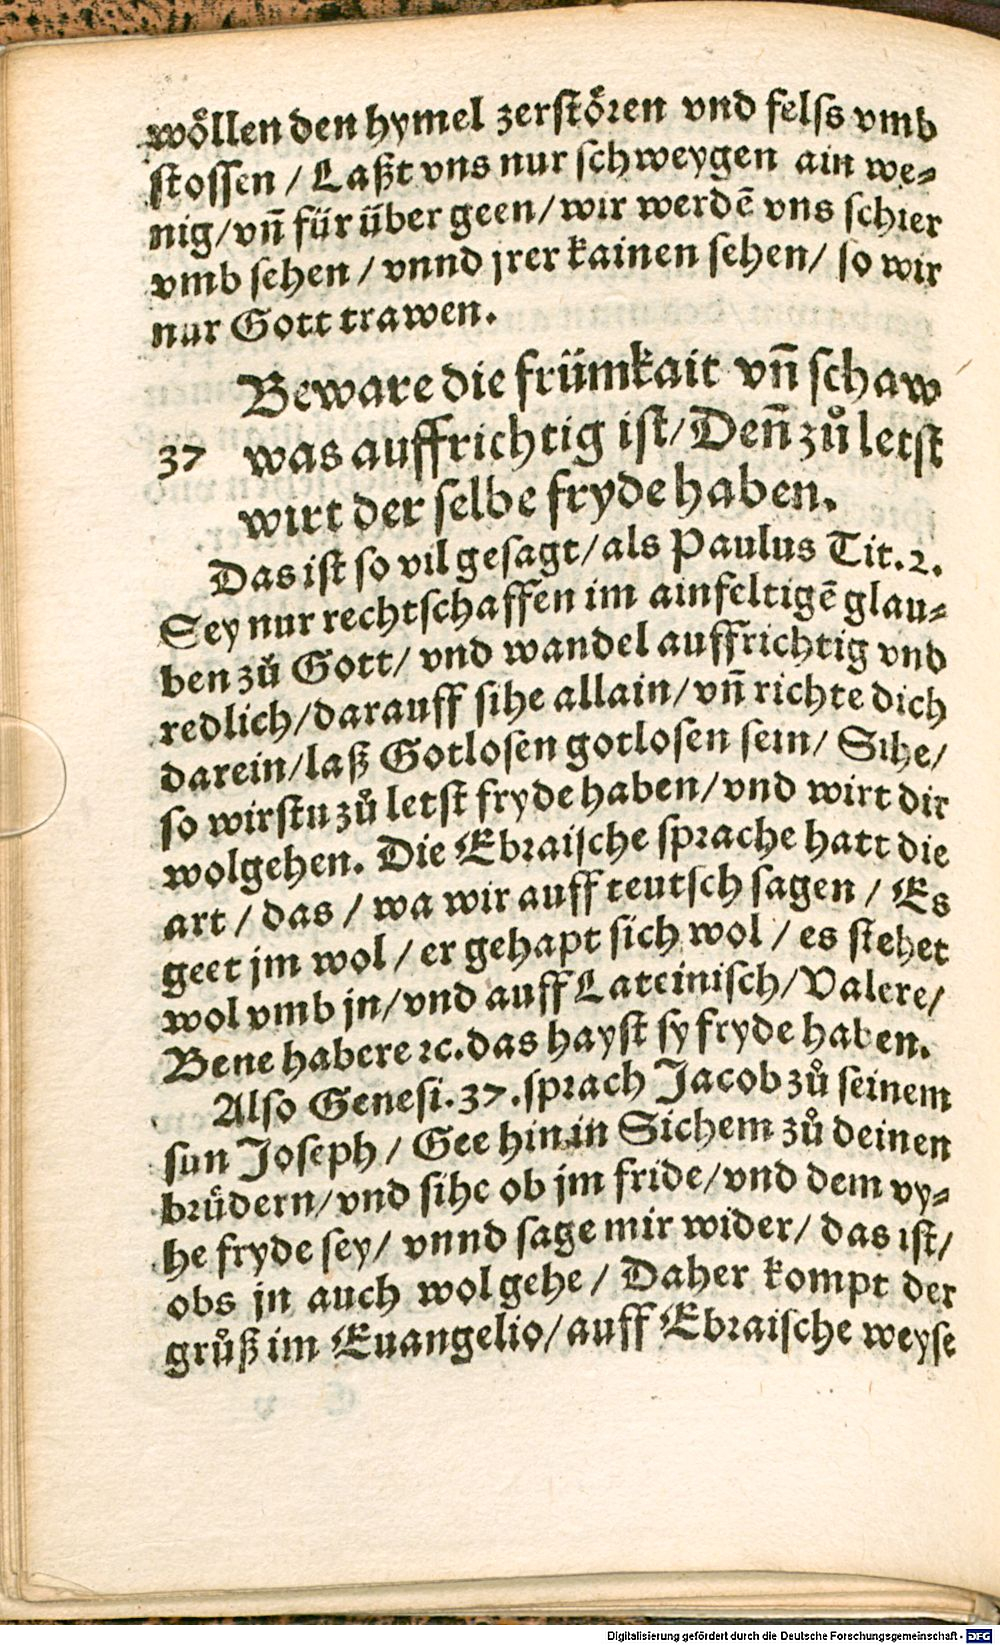 wöllen den hymel zerstören vnd felss vmb
stossen / Laßt vns nur schweygen ain we-
nig/vñ für über geen/wir werdē vns schier
vmb sehen / vnnd jrer kainen sehen/ so wir
nur Gott trawen.
Beware die frümkait vñ schaw
37 was auffrichtig ist/Deñ zů letst
wirt der selbe fryde haben.
Das ist so vil gesagt/als Paulus Tit.2.
Sey nur rechtschaffen im ainfeltigē glau-
ben zů Gott/ vnd wandel auffrichtig vnd
redlich/darauff sihe allain/vñ richte dich
darein/laß Gotlosen gotlosen sein/ Sihe/
so wirstu zů letst fryde haben/vnd wirt dir
wolgehen. Die Ebraische sprache hatt die
art / das / wa wir auff teutsch sagen / Es
geet jm wol / er gehapt sich wol / es stehet
wol vmb jn/vnd auff Lateinisch/Valere/
Bene habere ꝛc.das hayst sy fryde haben.
Also Genesi.37.sprach Jacob zů seinem
sun Joseph / Gee hin in Sichem zů deinen
brůdern/vnd sihe ob jm fride/vnd dem vy-
he fryde sey/ vnnd sage mir wider/ das ist/
obs jn auch wol gehe / Daher kompt der
grůß im Euangelio/auff Ebraische weyse
Digitalisierung gefördert durch die Deutsche Forschungsgemeinschaft - DFG